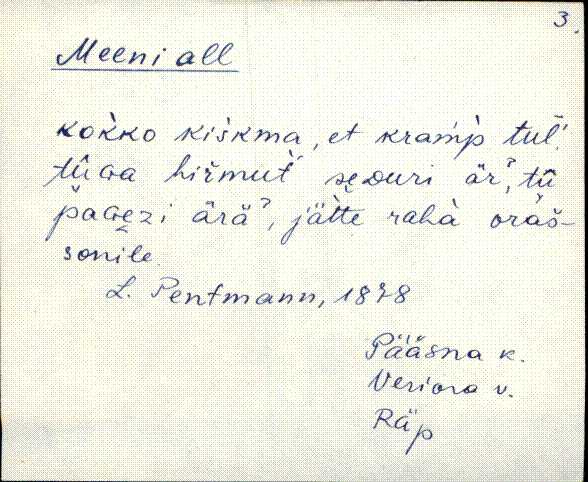 3.
Meeni all
kokko kiskma, et kramp tuĺ!
tûwa hirmut́ seᴅuri äŕˀ, tû
pawezi äräˀ, jätte rahà oräš-
sonile
L. Pentmann, 1878
Pääsna k.
Veriora v.
Räp